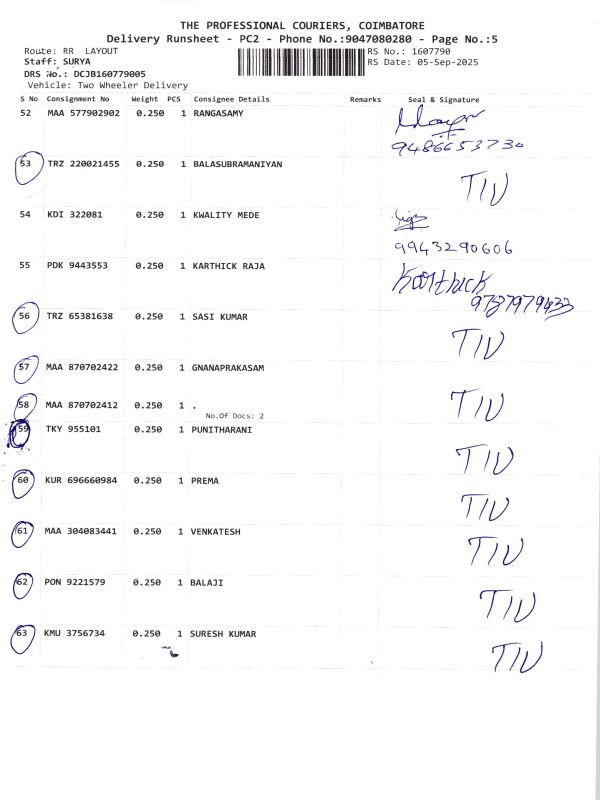 THE PROFESSIONAL COURIERS, COIMBATORE
Delivery Runsheet - PC2 - Phone No.:9047080280 - Page No.:5
Route: RR LAYOUT RS No.: 1607790
Staff: SURYA RS Date: 05-Sep-2025
DRS No.: DCJB160779005
Vehicle: Two Wheeler Delivery
S No Consignment No Weight PCS Consignee Details Remarks Seal & Signature
52 MAA 577902902 0.250 1 RANGASAMY
9486653730
53 TRZ 220021455 0.250 1 BALASUBRAMANIYAN
TIN
54 KDI 322081 0.250 1 KWALITY MEDE
9943290606
55 PDK 9443553 0.250 1 KARTHICK RAJA Karthick
56 TRZ 65381638 0.250 1 SASI KUMAR
TIN
57 MAA 870702422 0.250 1 GNANAPRAKASAM
58 MAA 870702412 0.250 1 . TIN
No.Of Docs: 2
59 TKY 955101 0.250 1 PUNITHARANI
TIN
60 KUR 696660984 0.250 1 PREMA
TIN
61 MAA 304083441 0.250 1 VENKATESH
TIN
62 PON 9221579 0.250 1 BALAJI
TIN
63 KMU 3756734 0.250 1 SURESH KUMAR
TIN